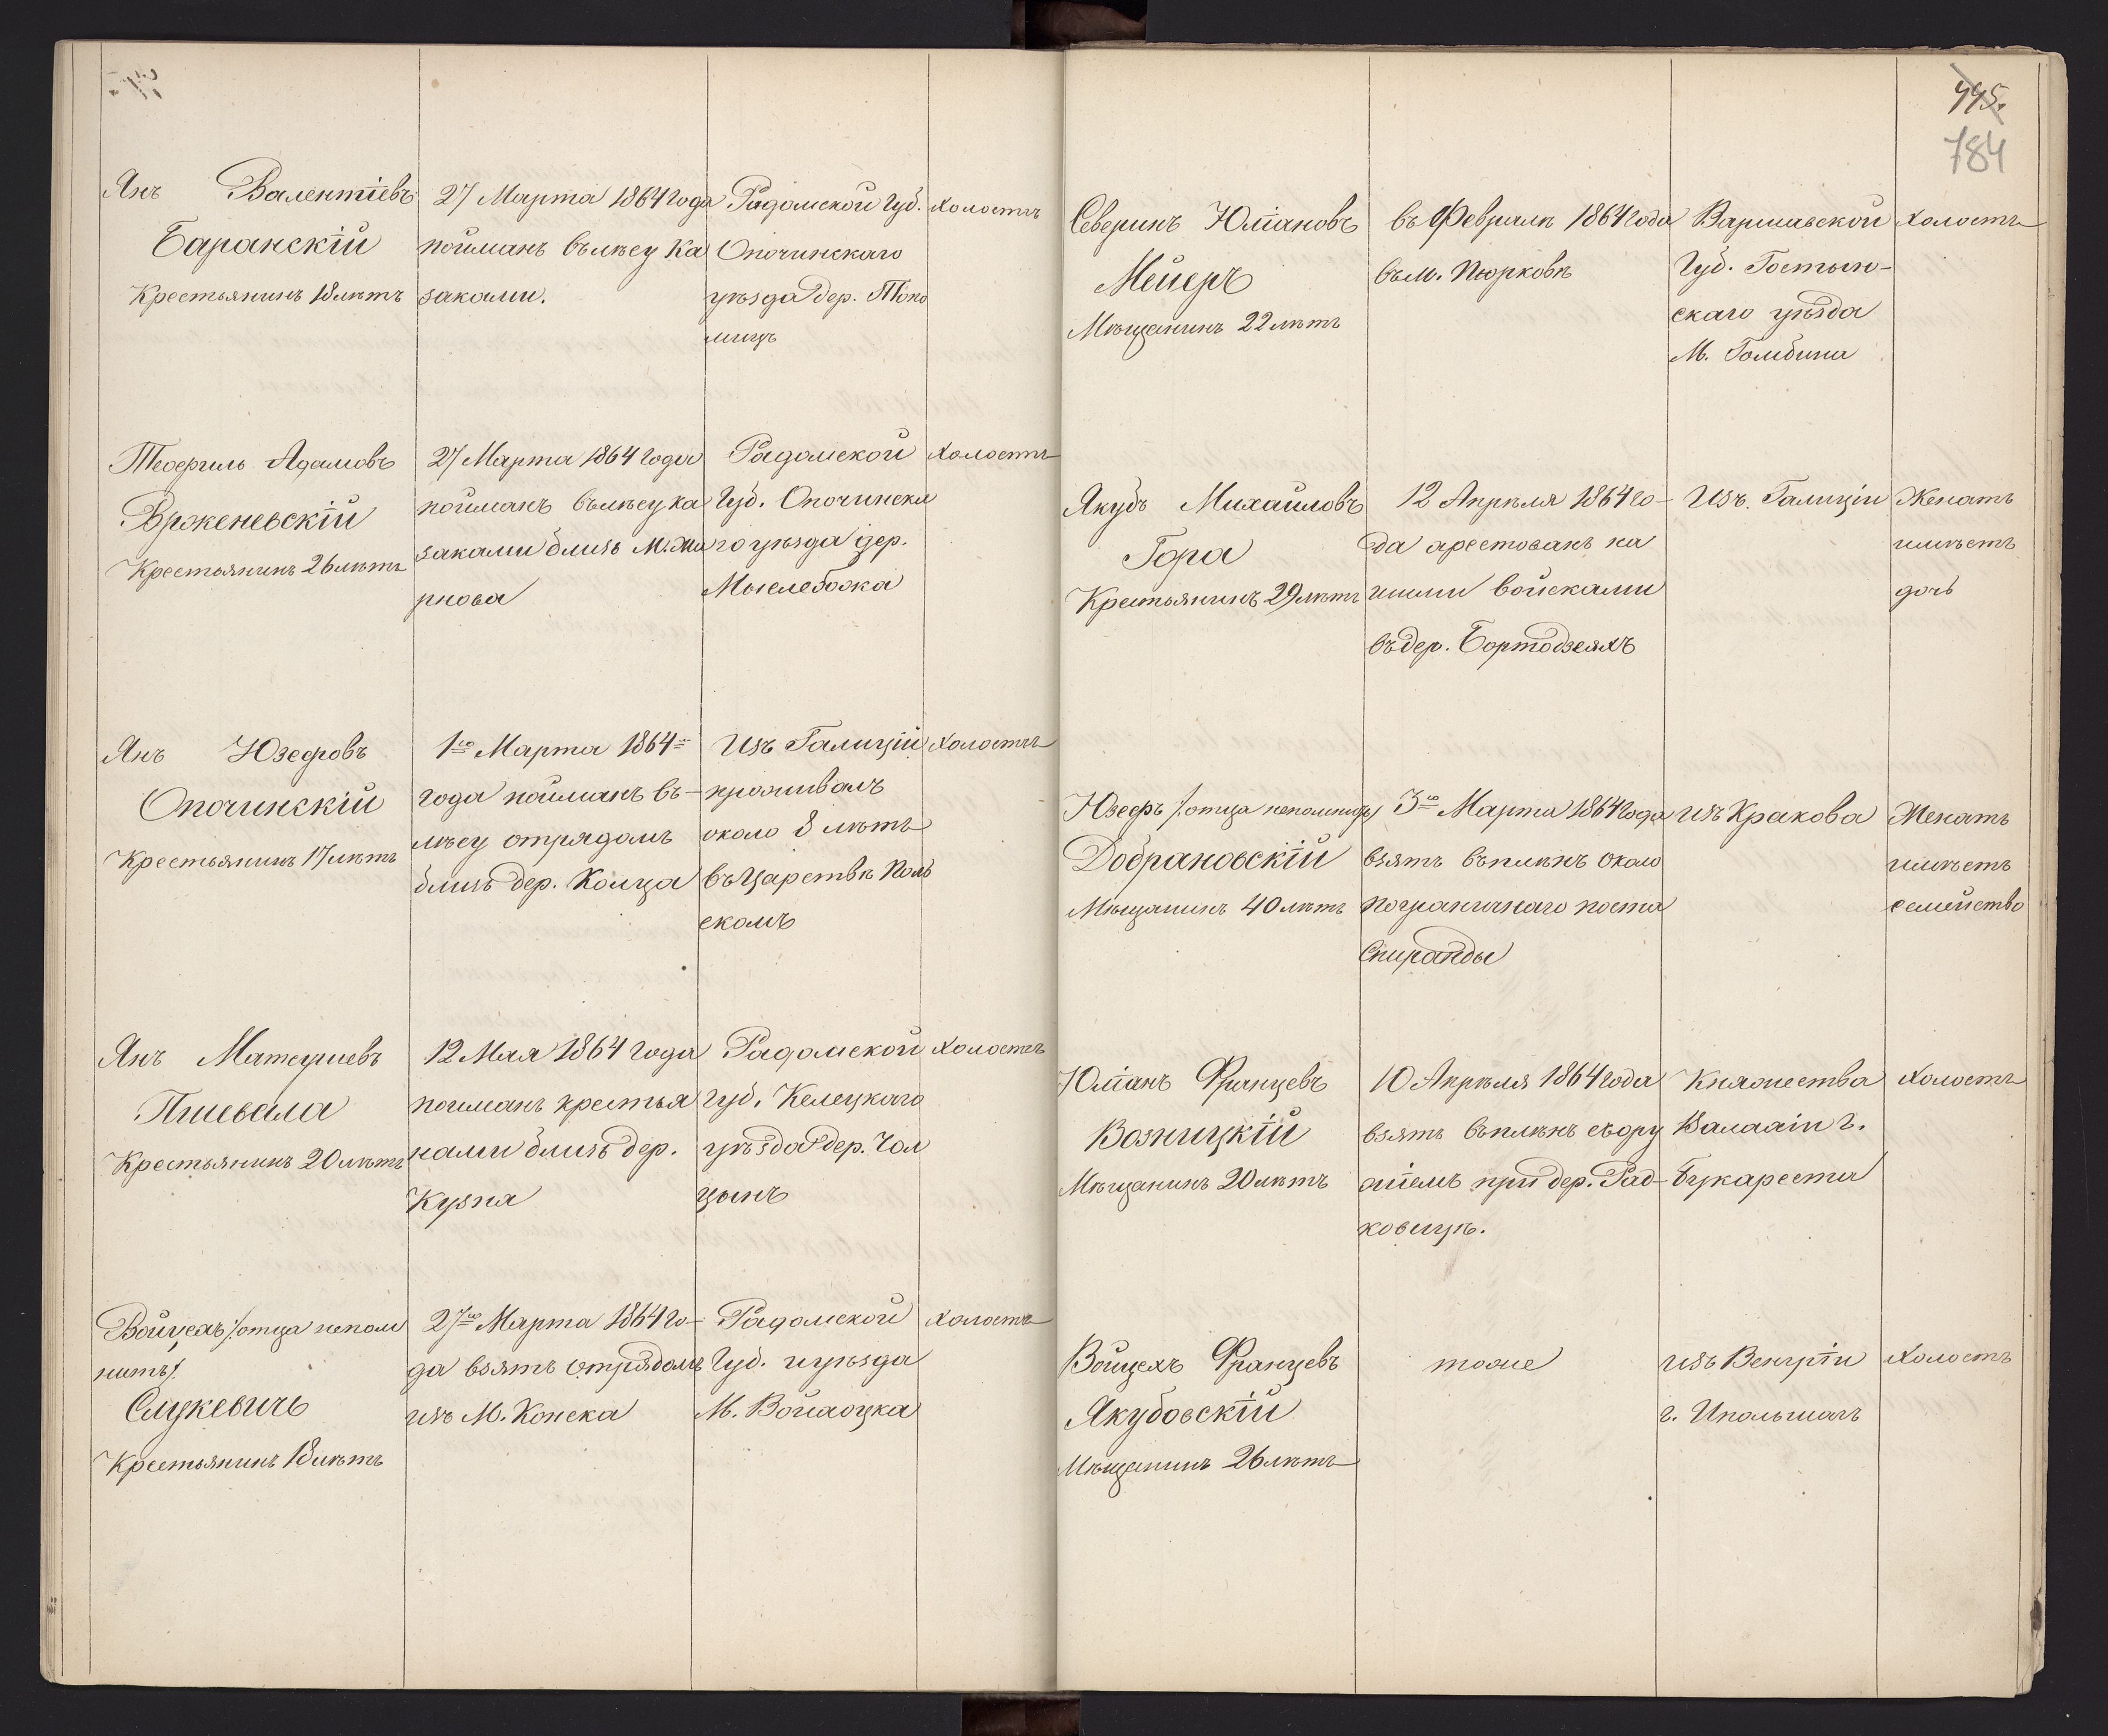 Янъ Валентіевъ
Баранскій
Крестьянинъ 18 лѣтъ
27 Марта 1864 года
пойманъ въ лѣсу Ка
заками.
Радомской губ.
Опочинскаго
уѣзда дер. Топо
лицъ
Холостъ
Теофиль Адамовъ
Врженевскій
Крестьянинъ 26 лѣтъ
27 Марта 1864 года
пойманъ въ лѣсу ка
заками близь М. Жа
рнова
Радомской
Губ. Опочинска
го уѣзда дер.
Мыслебожа
Холостъ
Янъ Юзефовъ
Опочинскій
Крестьянинъ 17 лѣтъ
1го Марта 1864=
года пойманъ въ-
лѣсу отрядомъ
близь дер. Колца
Изъ Галиціи
проживалъ
около 8 лѣтъ
въ Царствѣ Поль
скомъ
Холостъ
Янъ Матеушевъ
Пшевала
Крестьянинъ 20 лѣтъ
12 Мая 1864 года
пойманъ крестья
нами близь дер.
Кузня
Радомской
губ. Келецкаго
уѣзда дер. Чол
цынъ
Холостъ
Войцехъ /:отца непом
нитъ/.
Слукевичь
Крестьянинъ 18 лѣтъ
27го Марта 1864 го-
да взятъ отрядомъ
изъ М. Конска
Радомской
Губ. и уѣзда
М.
Холостъ
445.
784
Северинъ Юліановъ
Мейеръ
Мѣщанинъ 22 лѣтъ
въ Февралѣ 1864 года
въ м. Пюрковѣ
Варшавской
Губ. Гостын-
скаго уѣзда
М. Гомбина
Холостъ
Якубъ Михайловъ
Гора
Крестьянинъ 29 лѣтъ
12 Апрѣля 1864 го-
да арестованъ на
шими войсками
въ дер. Бортодзеяхъ
Изъ Галиціи
Женатъ
имѣетъ
дочь
Юзефъ /:отца непомнитъ/
Добрановскій
Мѣщанинъ 40 лѣтъ
3го Марта 1864 года
взятъ въ плѣнъ около
пограничнаго поста
Спиранды
изъ Кракова
Женатъ
имѣетъ
семейство
Юліанъ Францевъ
Возницкій
Мѣщанинъ 20 лѣтъ
10 Апрѣля 1864 года
взятъ въ плѣнъ съ ору
жіемъ при дер. Рад-
ковицѣ.
Княжества
Валахіи г.
Букареста
Холостъ
Войцехъ Францевъ
Якубовскій
Мѣщанинъ 26 лѣтъ
тоже
изъ Венгріи
г.
Холостъ